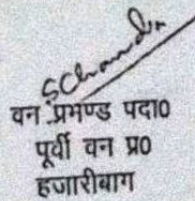 SChandra
वन प्रमण्ड पदा०
पूर्वी वन प्र०
हजारीबाग